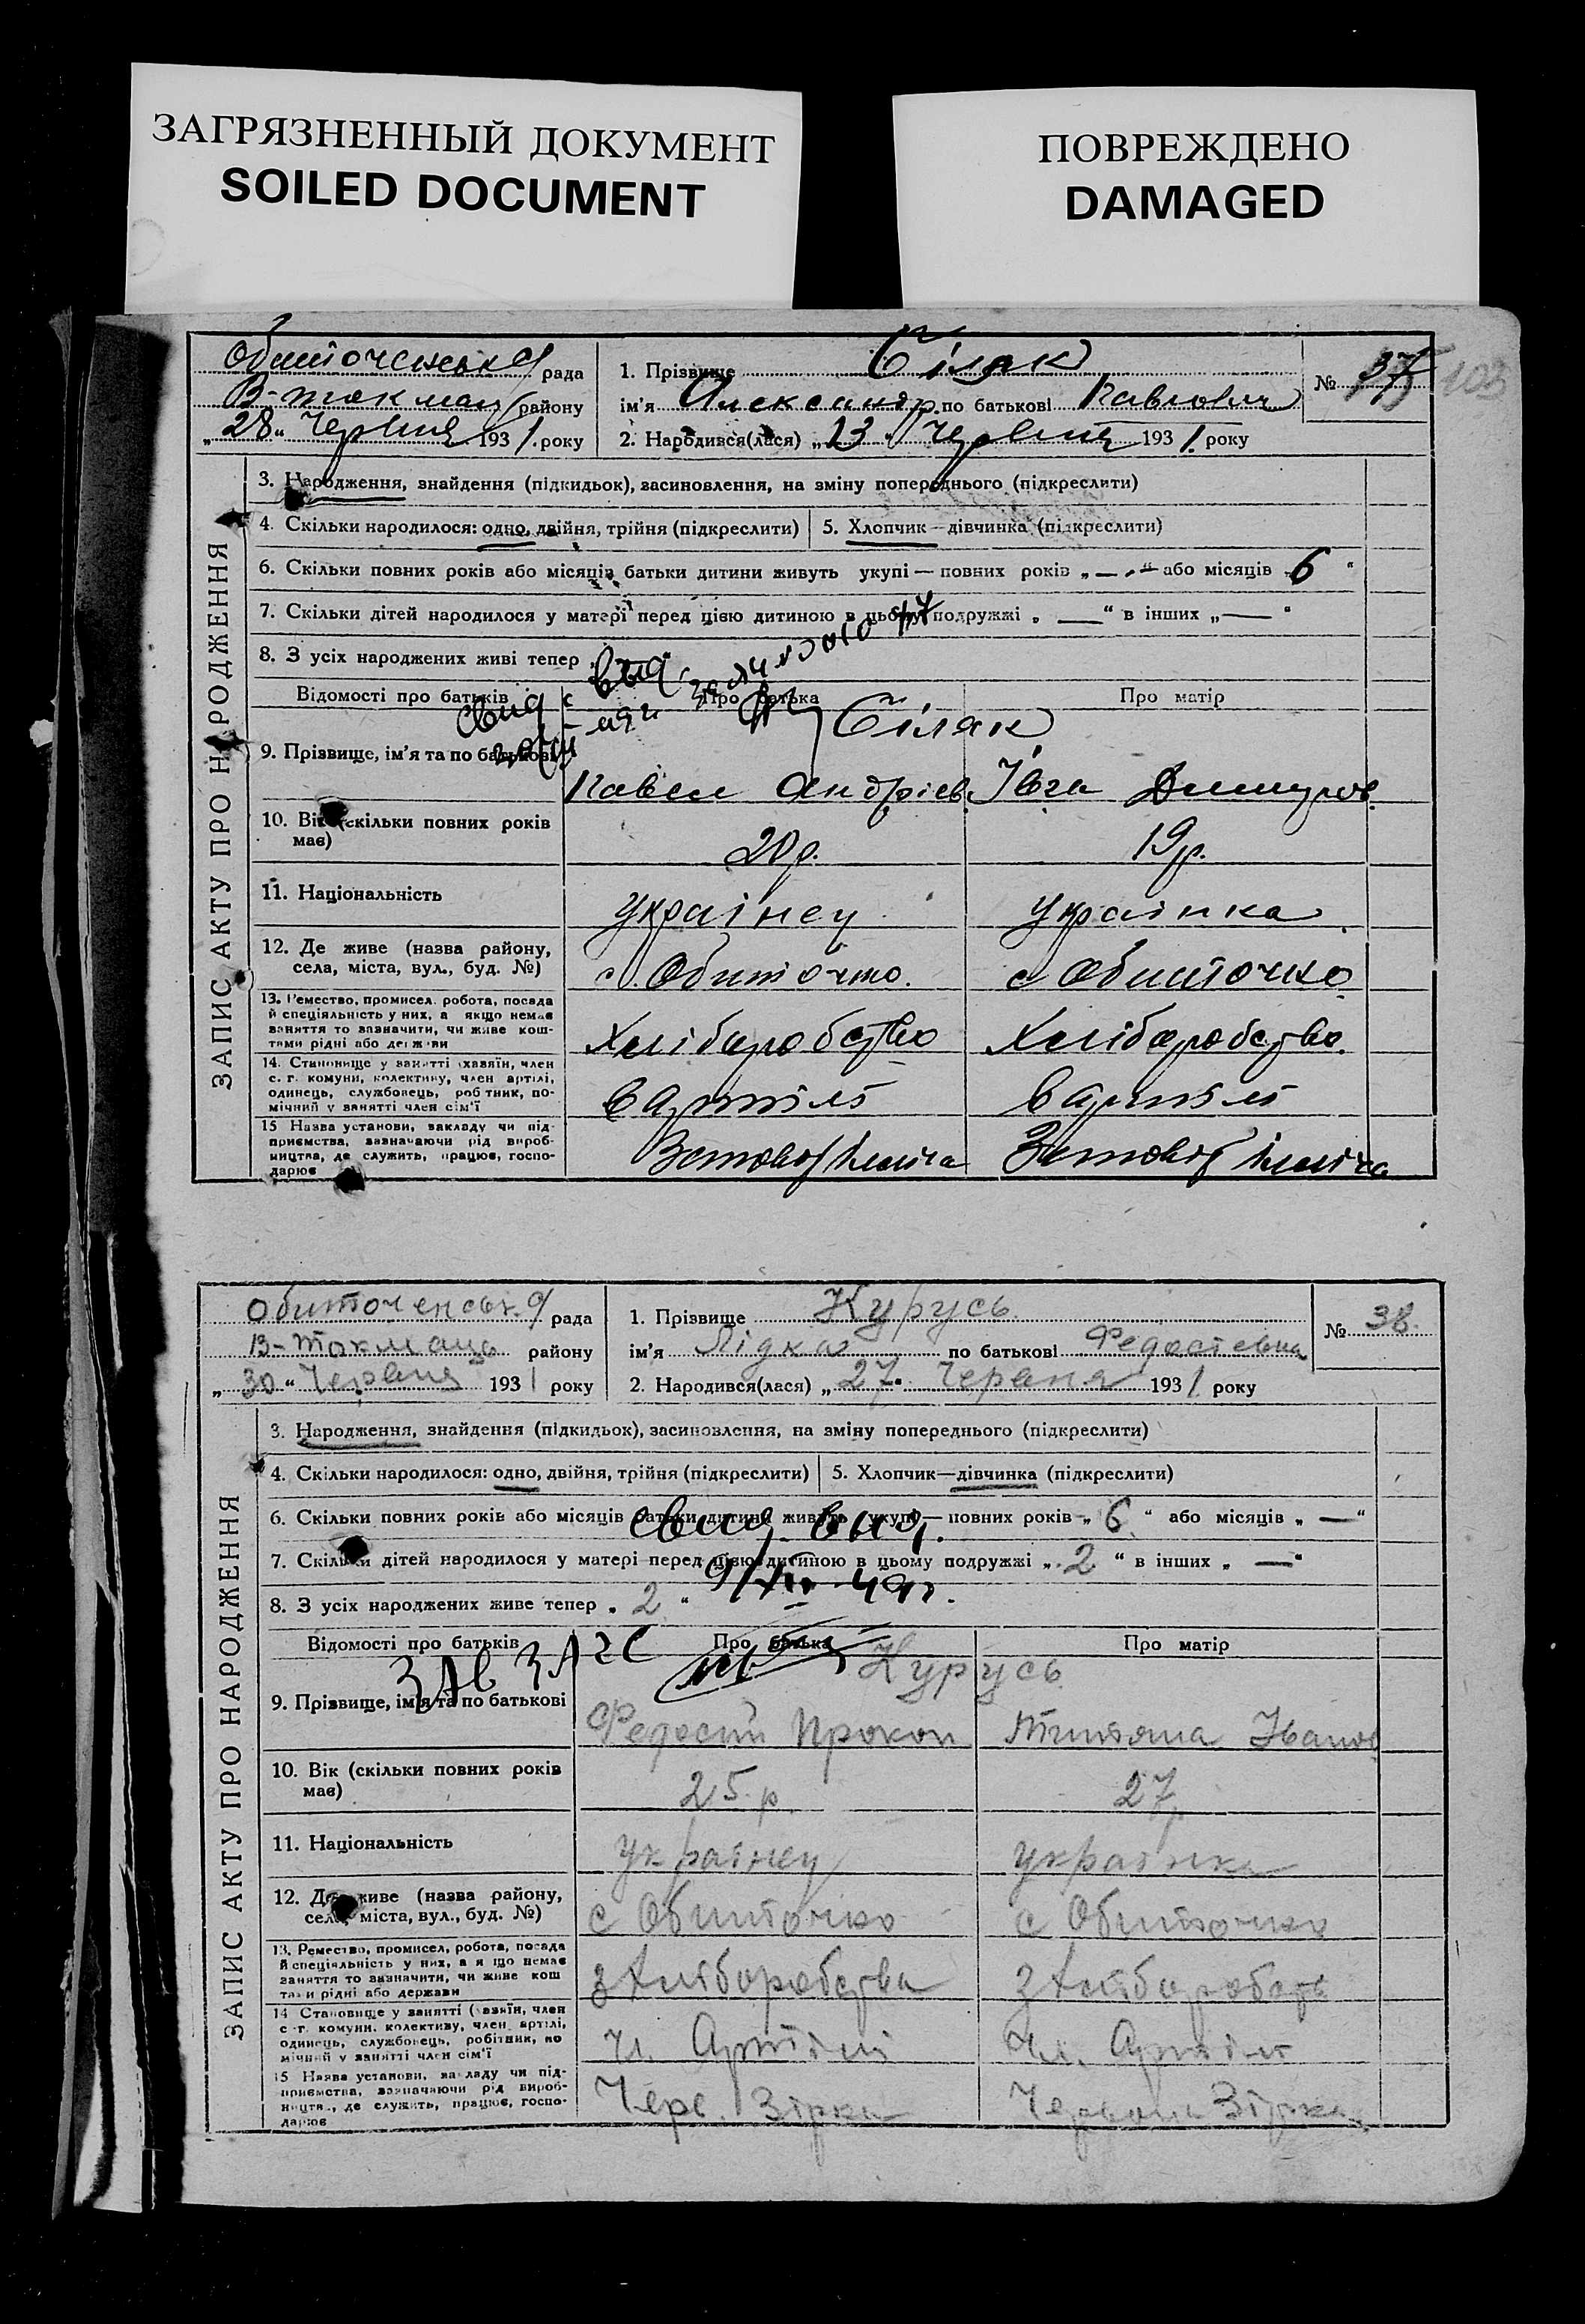 ЗАГРЯЗНЕННЫЙ ДОКУМЕНТ
SOILED DOCUMENT
ПОВРЕЖДЕНО
DAMAGED
Обиточенськ рада
В-Токмац району
„28“ Червня 1931 року
1. Прізвище Біляк
ім'я Александр по батькові Павлович
2. Народився(лася) „13“ Червня 1931 року
№ 37
103
ЗАПИС АКТУ ПРО НАРОДЖЕННЯ
3. Народження, знайдення (підкидьок), засиновлення, на зміну попереднього (підкреслити)
4. Скільки народилося: одно, двійня, трійня (підкреслити)
5. Хлопчик—дівчинка (підкреслити)
6. Скільки повних років або місяців батьки дитини живуть укупі — повних років „—“ або місяців „6“
7. Скільки дітей народилося у матері перед цією дитиною в цьому подружжі „—“ в інших „—“
8. З усіх народжених живі тепер
Відомості про батьків
Про батька
Про матір
9. Прізвище, ім'я та по батькові
Біляк
Павел Андріев.
Івга Дмитров.
10. Вік (скільки повних років має)
20 р.
19 р.
11. Національність
українец
українка
12. Де живе (назва району, села, міста, вул., буд. №)
с. Обиточно.
с Обиточно
13. Ремество, промисел, робота, посада й спеціяльність у них, а якщо немає заняття то вазначити, чи живе коштами рідні або держави
Хліборобство
Хліборобство.
14. Становище у занятті (хазяїн, член с. г. комуни, колективу, член артілі, одинець, службовець, робітник, помічний у занятті член сім'ї
в артілі
в артілі
15 Назва установи, закладу чи підприємства, зазначаючи рід виробництва, де служить, працює, господарює
Заповіт Ілліча
Заповіт Ілліча
Обиточенськ рада
В-Токмаць району
„30“ Червня 1931 року
1. Прізвище Курусь
ім'я Лідка по батькові Федостевна
2. Народився(лася) „27“ Червня 1931 року
№ 38
ЗАПИС АКТУ ПРО НАРОДЖЕННЯ
3. Народження, знайдення (підкидьок), засиновлення, на зміну попереднього (підкреслити)
4. Скільки народилося: одно, двійня, трійня (підкреслити)
5. Хлопчик—дівчинка (підкреслити)
6. Скільки повних років або місяців батьки дитини живуть укупі — повних років „6“ або місяців „—“
7. Скільки дітей народилося у матері перед цією дитиною в цьому подружжі „2“ в інших „—“
8. З усіх народжених живе тепер „2“
свид. выд.
49 г.
ЗАВ ЗАГС
Відомості про батьків
Про батька
Про матір
9. Прізвище, ім'я та по батькові
Курусь
Федостй Прокоп
Титяна Іванов
10. Вік (скільки повних років має)
25 р
27 р
11. Національність
українец
українка
12. Де живе (назва району, села, міста, вул., буд. №)
с Обиточно
с Обиточно
13. Ремество, промисел, робота, посада й спеціяльність у них, а якщо немає заняття то вазначити, чи живе коштами рідні або держави
з Хліборобства
з Хліборобств
14 Становище у занятті (хазяїн, член с. г. комуни, колективу, член артілі, одинець, службовець, робітник, помічний у занятті член сім'ї
Чл. Артілі
Чл. Артілі
15 Назва установи, закладу чи підприємства, зазначаючи рід виробництва, де служить, працює, господарює
Черв. Зірка
Червона Зірка